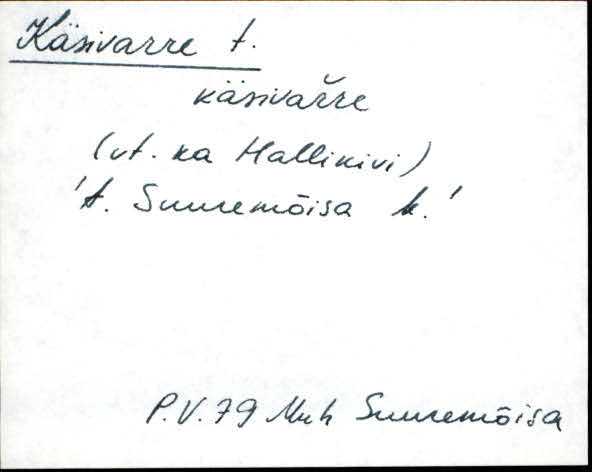 Käsivarre t.
käsivař̌re
(vt. ka Hallikivi)
't. Suuremõisa k.'
P.V. 79 Muh Suuremõisa